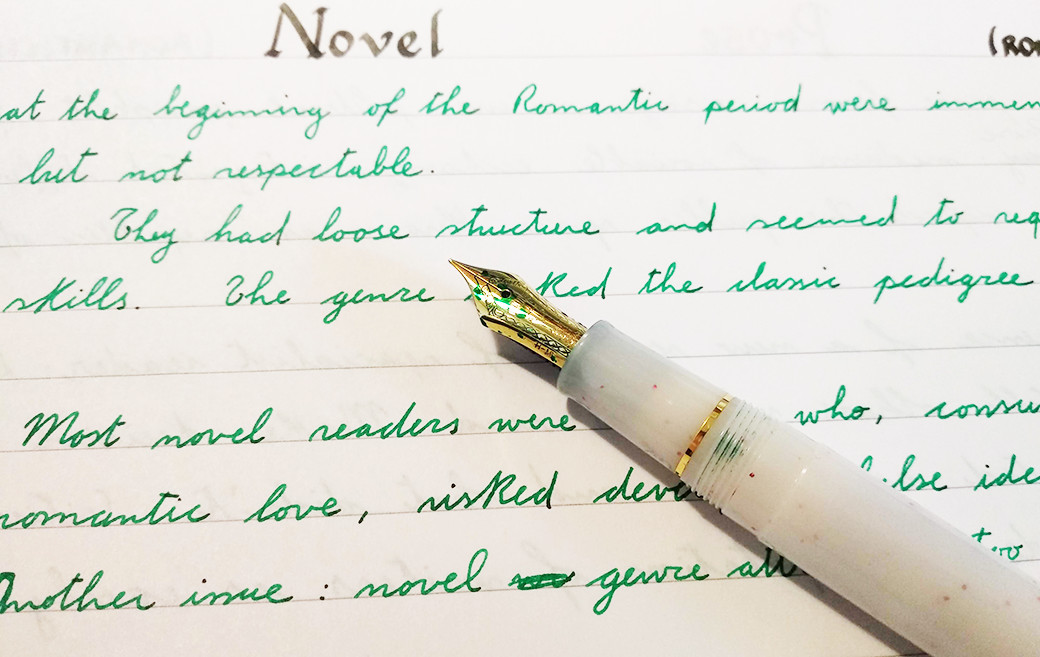 Novel (RO
at the beginning of the Romantic period were immen
but not respectable.
They had loose structure and seemed to req
skills. The genre ked the classic pedigree
Most novel readers were who, consu
romantic love, risked deve lse ide
two
Another issue : novel genre att